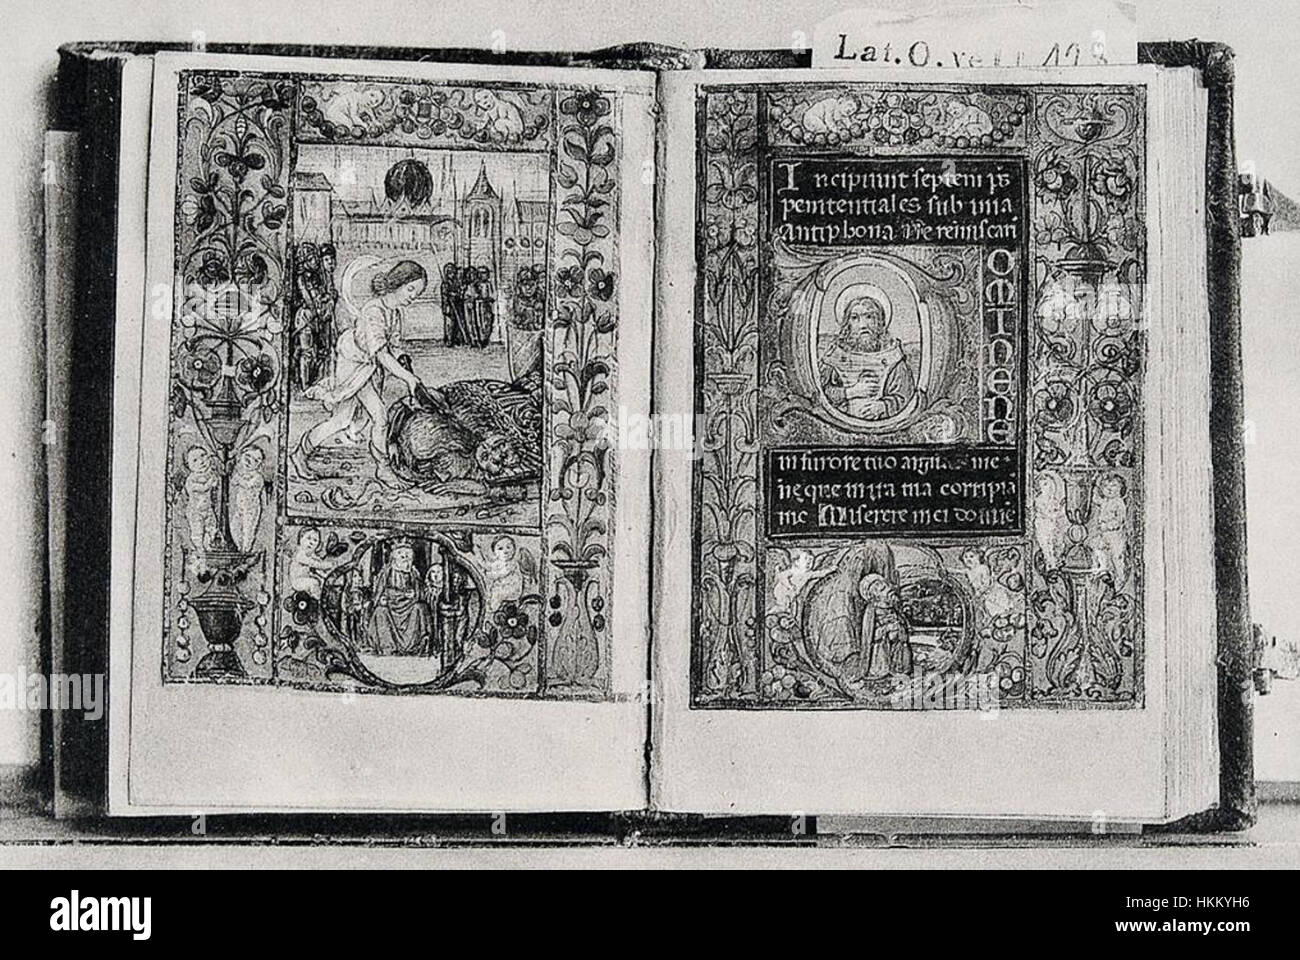 Lat. O. ve
Incipiunt septem ps
penitentiales sub una
Antiphona. Ne reminiscari
O
OMINENE
in furore tuo arguas me
neque in ira tua corripia
me Miserere mei domine
a alamy stock photo
alamy
Image ID: HKKYH6
www.alamy.com